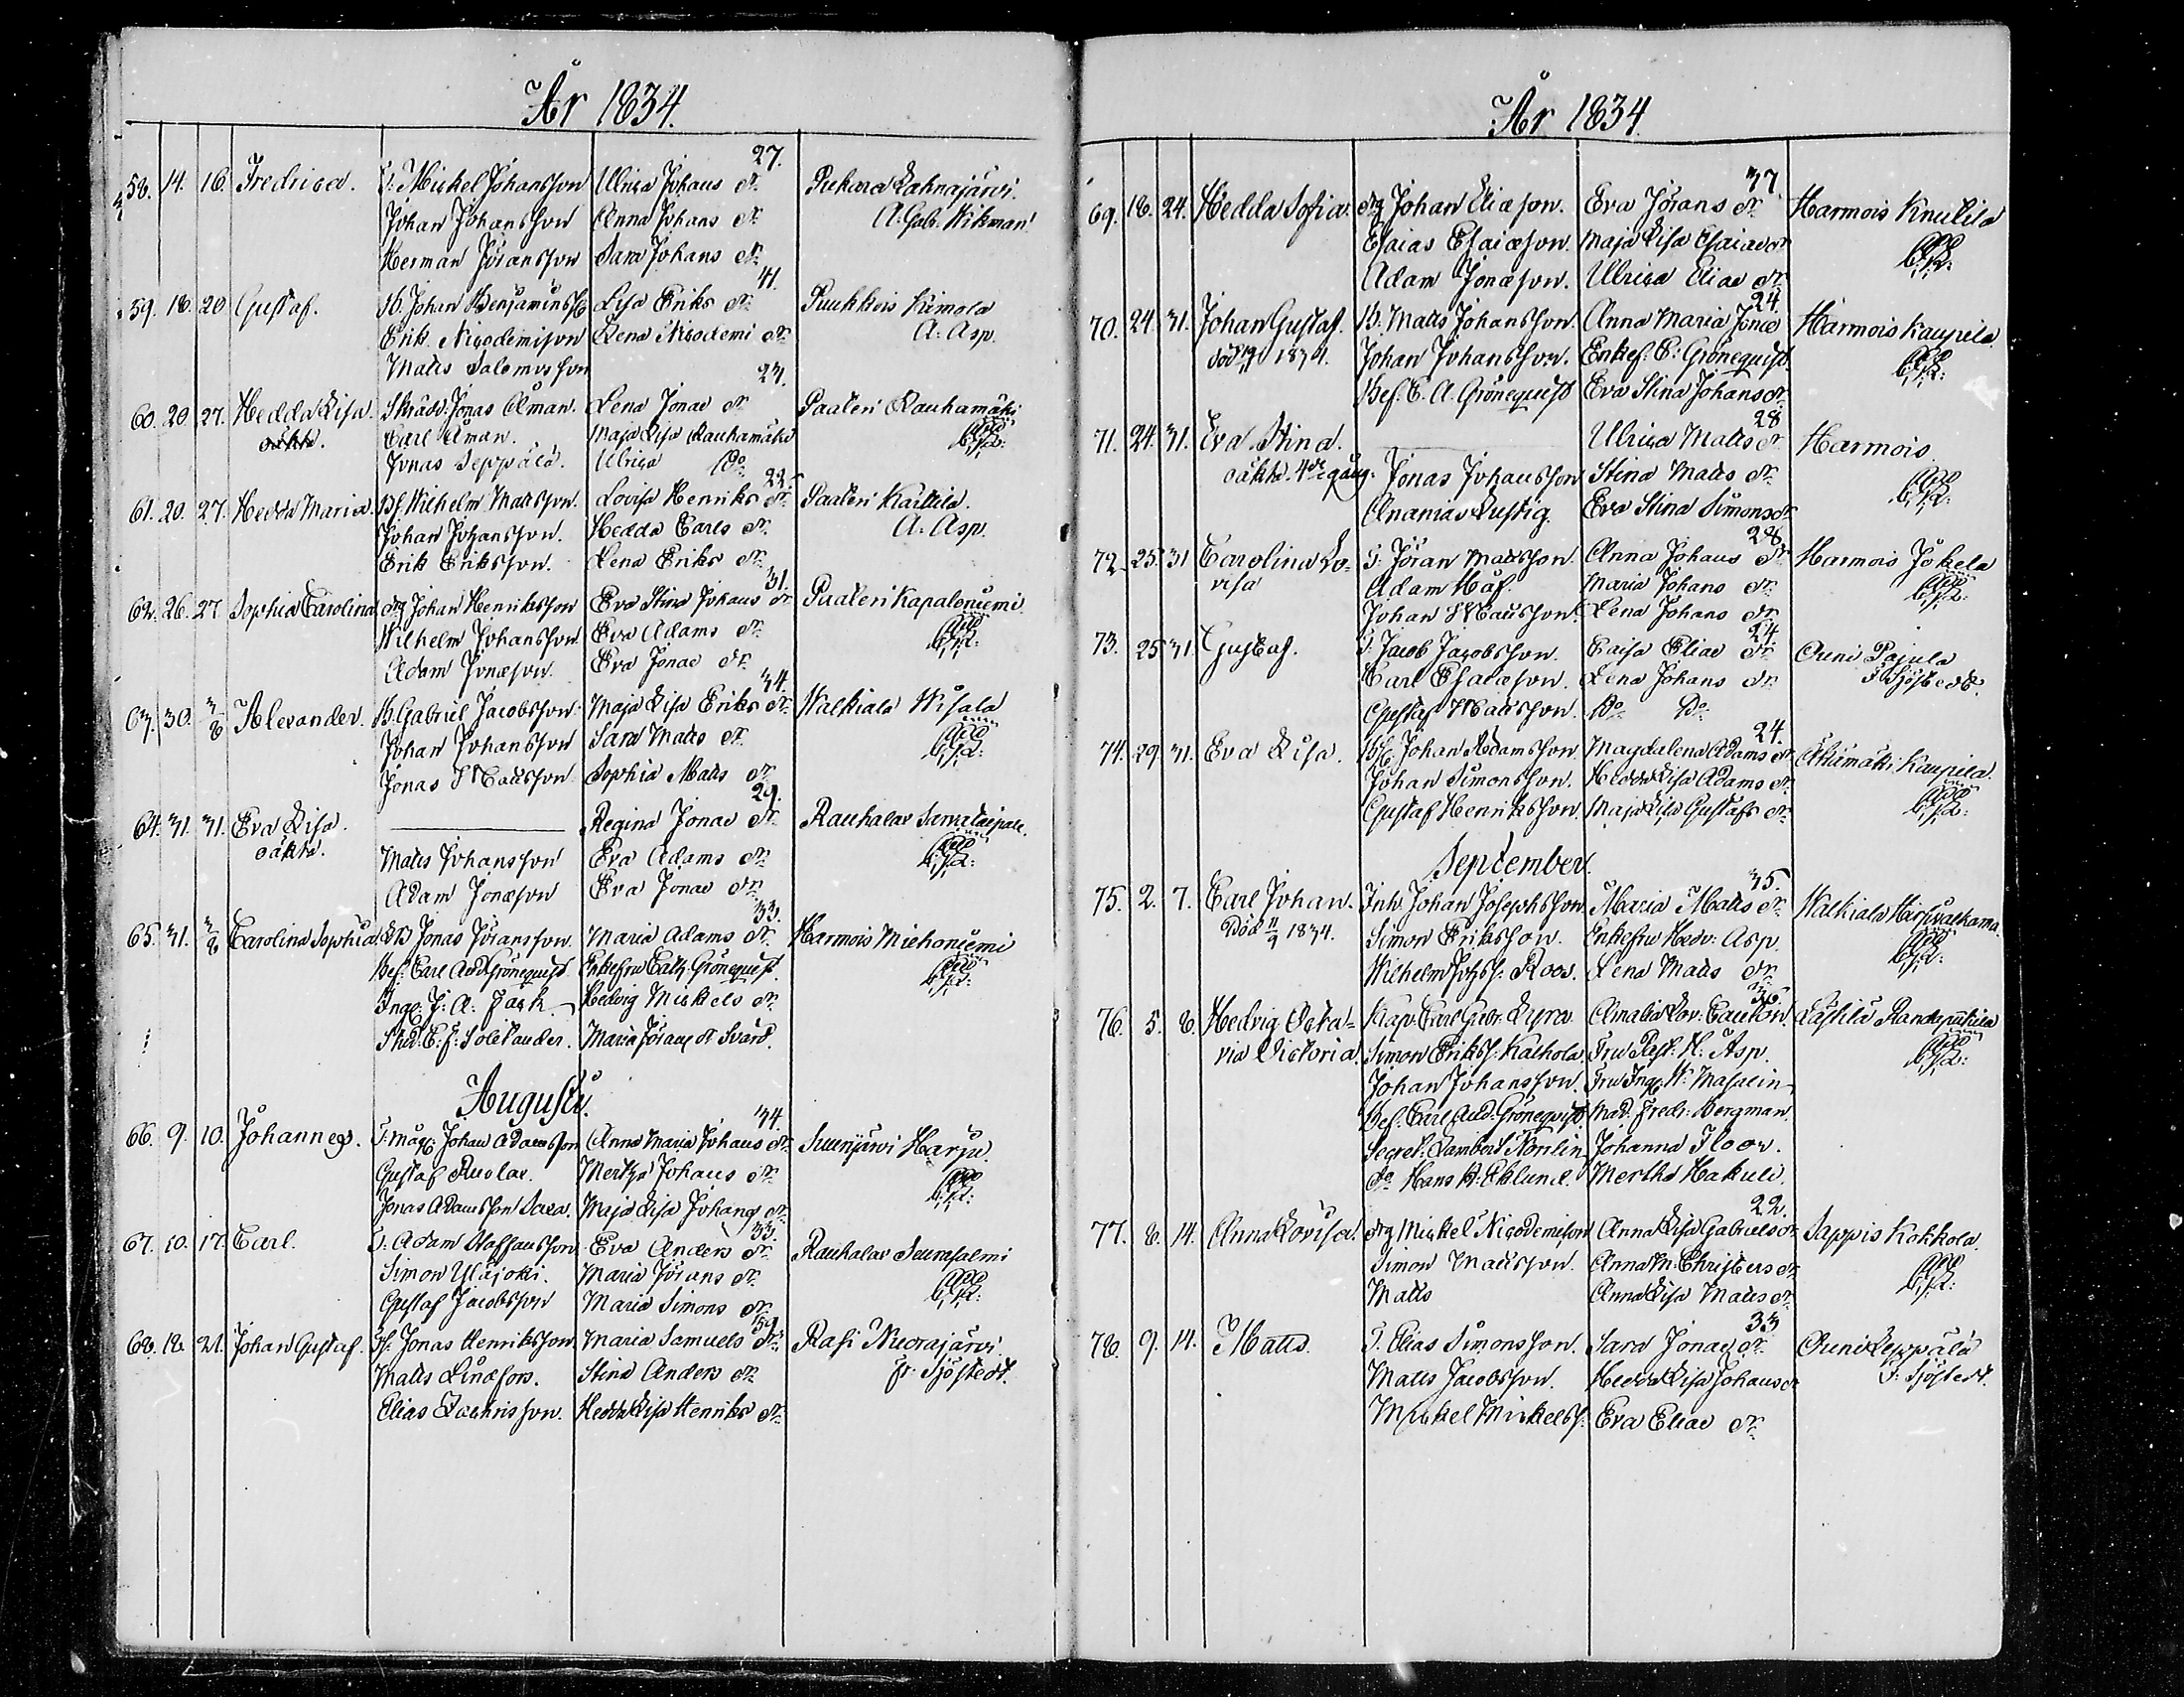 År 1834.
58. 14. 16. Fredrica. T: Mickel Johansson Ulrica Johans dr. 27. Pukara Lahnajärvi.
Johan Johansson Anna Johans dr. A: Gab. Wikman.
Herman Jöransson Sara Johans dr.
59. 18. 20 Gustaf. B. Johan Benjaminss Lisa Eriks dr. 41. Puukkois Kimola
Erik Nicodemison Lena Nicodemi dr. A: Asp.
Matts Salomonsson
60. 20. 27. Hedda Lisa. Skrädd: Jonas Åman. Lena Jonae dr. 23. Paateri Rauhamäki
oäkta. Carl Åman. Maja Lisa Rauhamäki
Jonas Seppälä. Ulrica Do
61. 20. 27. Hedda Maria. Wilhelm Mattsson. Lovisa Henriks dr. 22. Paateri Kaittila.
Johan Johansson. Hedda Carls dr. A: Asp.
Erik Eriksson. Lena Eriks dr.
62. 26. 27. Sophia Carolina drg Johan Henriksson Eva Stina Johans dr 31. Paateri Kapaloniemi
Wilhelm Johansson. Eva Adams dr.
Adam Jonæson. Eva Jonae dr.
63. 30. 3/8 Alexander. B. Gabriel Jacobsson. Maja Lisa Eriks dr. 34. Walkiala Wisala
Johan Johansson Sara Matts dr.
Jonas Mattsson Sophia Matts dr.
64. 31. 31. Eva Lisa. Regina Jonae dr. 29. Rauhalax Sarvataipale.
oäkta. Matts Johansson Eva Adams dr.
Adam Jonæson Eva Jonae dr.
65. 31. 3/8 Carolina Sophia Jonas Jöransson. Maria Adams dr. 33. Harmois Miehoniemi
Bef. Carl Aud. Grönequist Enkefru Cath. Grönequist.
Ing: J: A: Jack Hedvig Mickels dr.
Stud. E: J: Solitander. Maria Jörans dr Svärd.
Augusti.
66. 9. 10. Johannes. T: måg: Johan Adamsson Anna Maria Johans dr. 34. Suurijärvi Harju.
Gustaf Ruolax. Mertha Johans dr.
Jonas Adamsson Sara. Maja Lisa Johans dr.
67. 10. 17. Carl. T. Adam Staffansson Eva Anders dr. 33. Rauhalax Seurasalmi
Simon Ylijoki. Maria Jörans dr.
Gustaf Jacobsson Maria Simons dr.
68. 18. 21. Johan Gustaf. Jonas Henriksson Maria Samuels dr. Rasi Nuorajärvi.
Matts Linæson. Stina Anders dr. Fr: Sjöstedt.
Elias Zachrisson. Hedda Lisa Henriks dr.
År 1834
69. 18. 24. Hedda Sofia. drg Johan Eliæson. Eva Jörans dr. 37. Harmois Knuttila
Esaias Esaiæson. Maja Lisa Esaiæ dr
Adam Jonæson. Ulrica Eliae dr.
70. 24. 31. Johan Gustaf. B. Matts Johansson. Anna Maria Jonæ 24. Harmois Kaupila.
död 1834. Johan Johansson. Enkef. C: Grönequist.
Bef. C. A. Grönequist Eva Stina Johans dr.
71. 24. 31. Eva Stina. Ulrica Matts dr 28 Harmois.
oäkta 4de gång. Jonas Johansson Stina Matts dr.
Ananias Lustig. Eva Stina Simons dr
72. 25. 31 Carolina Lo- T. Jöran Mattsson. Anna Johans dr 28. Harmois Jokela
visa Adam Häf. Maria Johans dr.
Johan Mattsson. Lena Johans dr
73. 25 31 Gustaf. T. Jacob Jacobsson. Caisa Eliae dr 24. Orini Pajula
Carl Esaiæson. Lena Johans dr. F: Sjöstedt.
Gustaf Mattsson. Do Do
74. 29. 31. Eva Lisa. Johan Adamsson. Magdalena Adams dr 24. Kaupila.
Johan Simonsson. Hedda Lisa Adams dr.
Gustaf Henriksson. Maja Lisa Gustafs dr.
September.
75. 2. 7. Carl Johan. Inh. Johan Josephsson. Maria Matts dr. 35. Walkiala
Död 11/9 1834. Simon Eriksson. Enkefru Hedv: Asp.
Wilhelm Johss: Roos. Lena Matts dr.
76. 5. 8. Hedvig Octa- Kap. Carl Gabr. Lyra. Amalia Lov: Cantón. 36.
via Victoria. Simon Erikss: Kalhola. Fru Past. H: Asp.
Johan Johansson. Fru Ing: W: Masalin
Bef. Carl Aud. Grönequist Mad. Fredr: Bergman.
Secret. Lambert Norlin Johanna Floor.
do Hans H: Eklund. Mertha Hakuli.
77. 8. 14. Anna Lovisa. drg Mickel Nicodemison Anna Lisa Gabriels dr 22. Sappis Kokkola.
Simon Mattsson. Anna M: Christers dr
Matts Anna Lisa Matts dr
78. 9. 14. Matts. T. Elias Simonsson. Sara Jonae dr. 33 Orini Leppälä
Matts Jacobsson. Hedda Lisa Johans dr F: Sjöstedt.
Mickel Mickelss: Eva Eliae dr